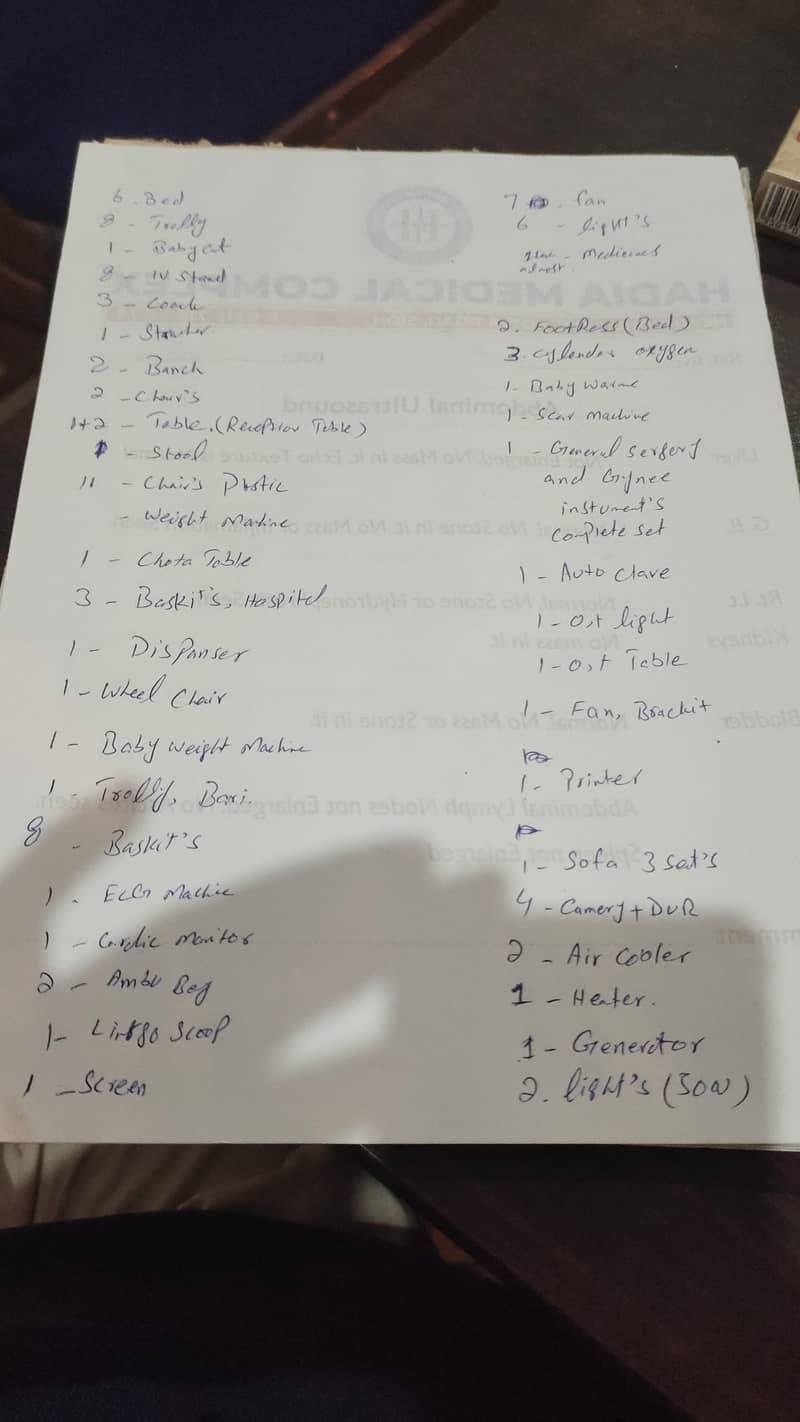 6. Bed
8 - Trolly
1 - Baby Cot
8 - IV Stand
3 - Coach
1 - Stracher
2 - Banch
2 - Chair's
1+2 - Table. (Reception Table)
1 - Stool
11 - Chair's Plstic
- Weight Machine
1 - Chota Table
3 - Baskit's, Hospital
1 - Dispanser
1 - Wheel Chair
1 - Baby Weight Machine
1 - Trolly, Bari.
8 - Baskit's
1 - ECG Machie
1 - Cardic Monitor
2 - Ambu Beg
1 - Scoop
1 - Screen
7 - fan
6 - light's
- Medicines
almost.
2. FootRess (Bed)
3. Cylender oxygen
1 - Baby Warme
1 - Machine
1 - General Sergery
and Gynee
instument's
Complete set
1 - Auto Clave
1 - O,t light
1 - O,t Table
1 - Fan, Brackit
1 - Printer
1 - Sofa 3 Sat's
4 - Camery + DVR
2 - Air Cooler
1 - Heater.
1 - Generator
2. light's (50W)
HADIA MEDICAL COMPLEX
Abdominal Ultrasound
Liver
G.B.
Rt. Lt
Kidneys
No mass in it.
Bladder
Normal, No Mass or Stone in it.
Abdominal Lymph Nodes not Enlarged.